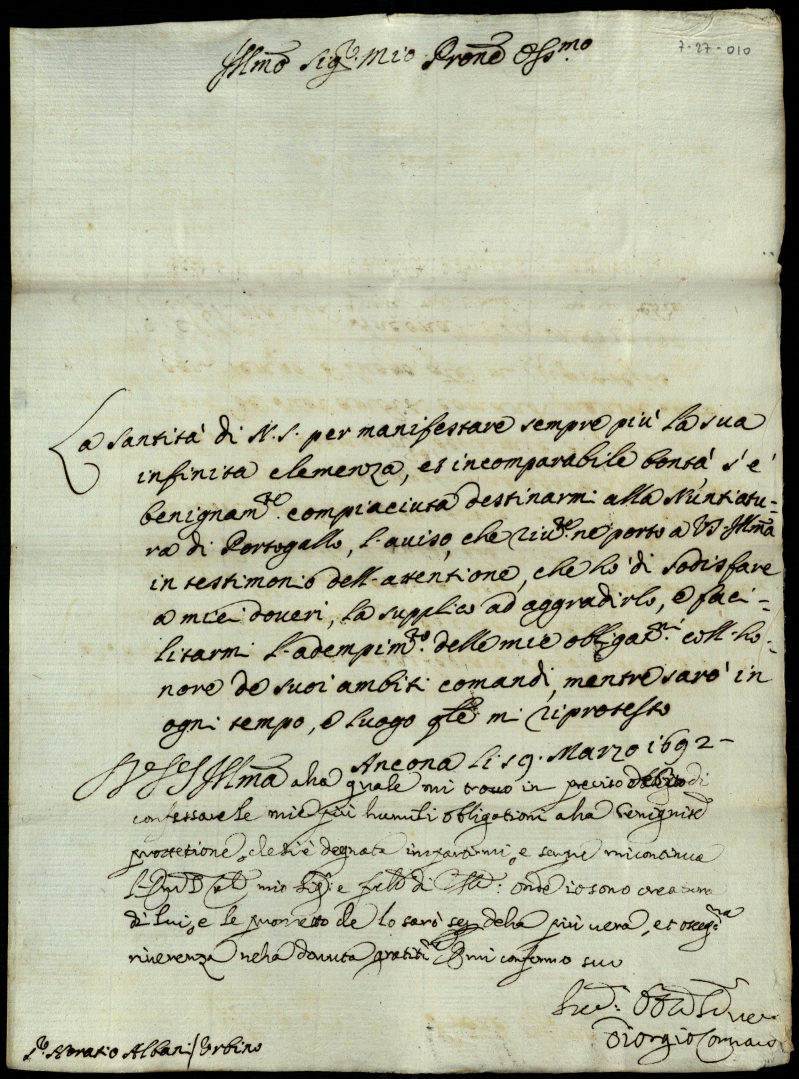 7-27-010
Ill.mo Sig.r Mio Prone Oss.mo
La Santità di N.S. per manifestare sempre più la sua
infinita clemenza, et incomparabile bontà, s'è
benignam.te compiaciuta destinarmi alla Nuntiatu-
ra di Portogallo, l'aviso, che ne porto a VS Ill.ma
in testimonio dell'attentione, che hò di sodisfare
a miei doveri, la supplico ad aggradirlo, e faci-
litarmi l'adempim.to delle mie obligat.ni coll'ho-
nore de suoi ambiti comandi, mentre sarò in
ogni tempo, e luogo q.le mi riprotesto
Ancona li 19. Marzo 1692
Ill.ma alla quale mi trovo in preciso di
confessare le mie più humili obligationi alla benignità
protettione, che si è degnata impartirmi, e sempre mi continua
mio Sig.re e onde io sono creatura
di lui, e le protesto che lo sarò della più vera, et osseq.ma
riverenza nella dovuta mi confermo suo
Giorgio Cornaro
S.r Horatio Albani / Urbino